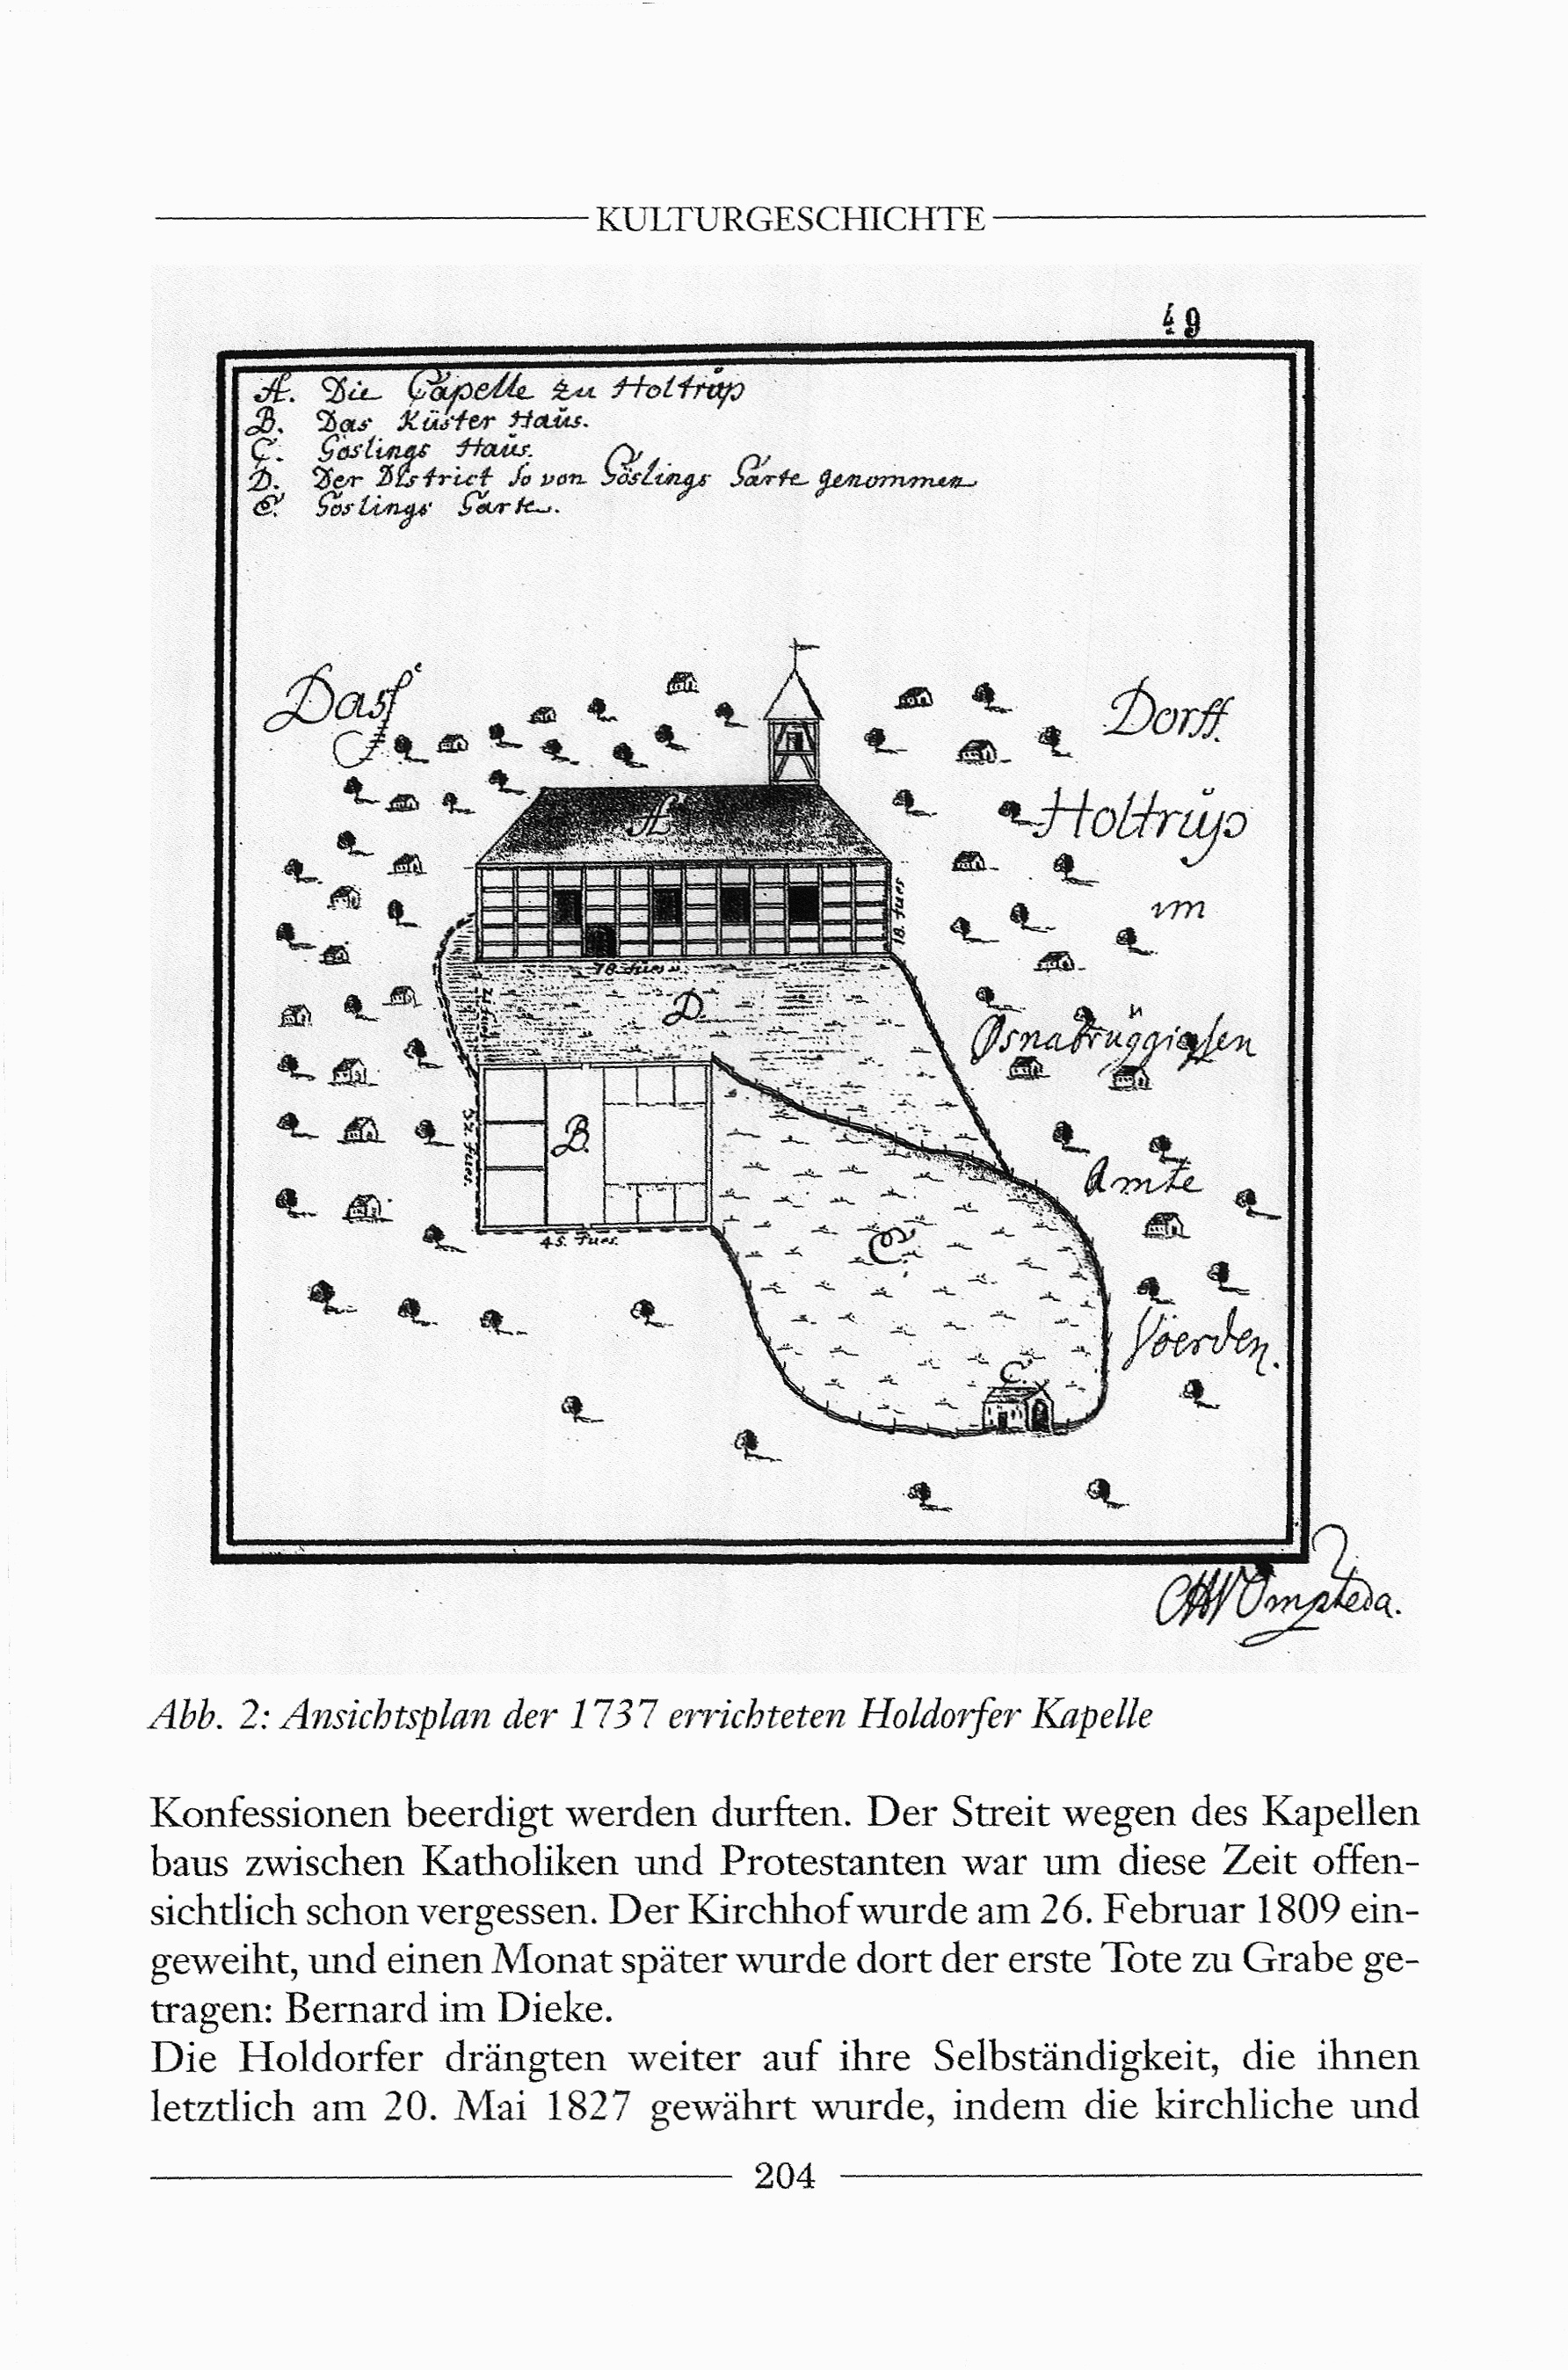 KULTURGESCHICHTE
49
A. Die Capelle zu Holtrup
B. Das Küster Haus.
C. Göslings Haus.
D. Der District so von Göslings Garte genommen
E. Göslings Garte.
Das
Dorff
Holtrup
im
Osnabrüggischen
Amte
Vöerden.
A
18. fues
78. fues
D.
B.
32. fues.
45. fues.
E.
C.
Ompteda.
Abb. 2: Ansichtsplan der 1737 errichteten Holdorfer Kapelle
Konfessionen beerdigt werden durften. Der Streit wegen des Kapellen
baus zwischen Katholiken und Protestanten war um diese Zeit offen-
sichtlich schon vergessen. Der Kirchhof wurde am 26. Februar 1809 ein-
geweiht, und einen Monat später wurde dort der erste Tote zu Grabe ge-
tragen: Bernard im Dieke.
Die Holdorfer drängten weiter auf ihre Selbständigkeit, die ihnen
letztlich am 20. Mai 1827 gewährt wurde, indem die kirchliche und
204